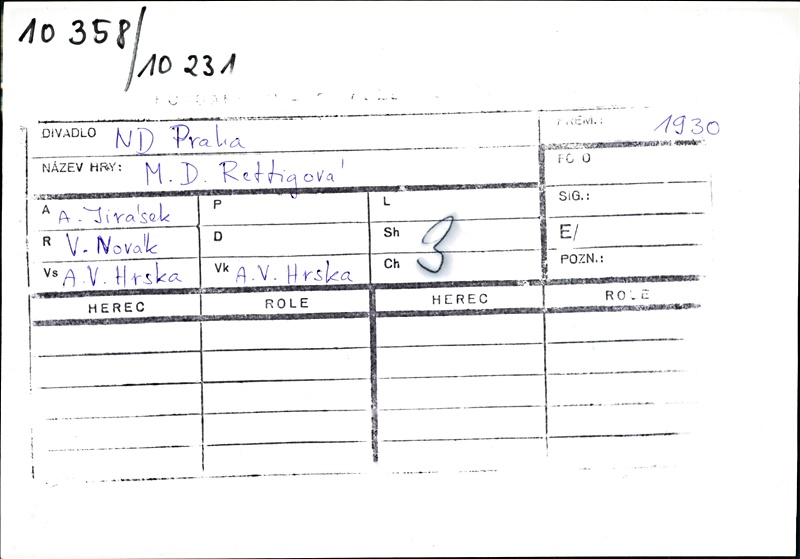 10 358/
10 231
DIVADLO ND Praha
PRÉM.: 1930
NÁZEV HRY: M. D. Rettigová
FOTO
A A. Jirásek P L SIG.:
R V. Novák D Sh 3 E/
Vs A.V. Hrska Vk A.V. Hrska Ch POZN.:
HEREC ROLE HEREC ROLE